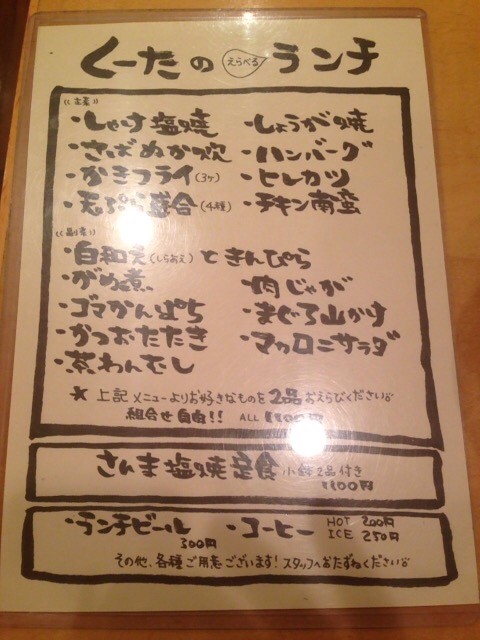 くーたの えらべる ランチ
《主菜》
・しゃけ塩焼 ・しょうが焼
・さばぬか炊 ・ハンバーグ
・かきフライ(3ヶ) ・ヒレカツ
・天ぷら盛合(4種) ・チキン南蛮
《副菜》
・白和え(しらあえ)ときんぴら
・がめ煮 ・肉じゃが
・ゴマかんぱち ・まぐろ山かけ
・かつおたたき ・マカロニサラダ
・茶わんむし
★ 上記メニューよりお好きなものを2品おえらびください。
組合せ自由!! ALL 1100円
さんま塩焼定食 小鉢2品付き
1100円
・ランチビール ・コーヒー HOT 200円
300円 ICE 250円
その他、各種ご用意ございます!スタッフへおたずねください。